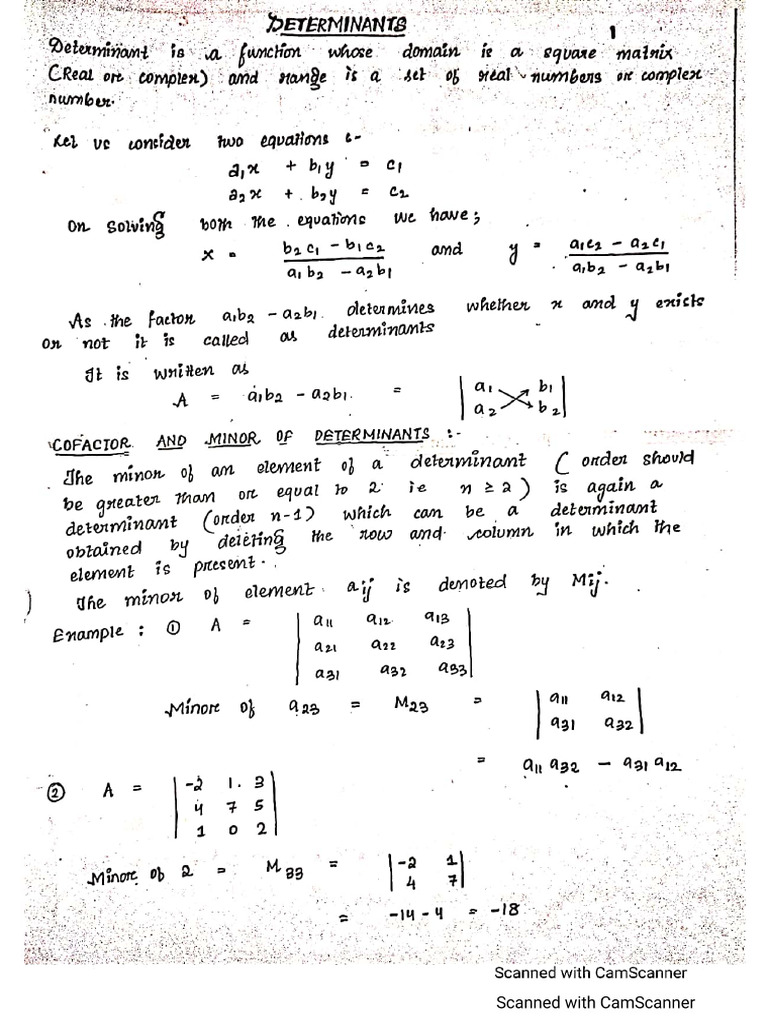 DETERMINANTS
1
Determinant is a function whose domain is a square matrix
(Real or complex) and range is a set of real numbers or complex
number.
Let us consider two equations :-
a₁x + b₁y = c₁
a₂x + b₂y = c₂
On solving both the equations we have;
x = (b₂c₁ - b₁c₂)/(a₁b₂ - a₂b₁) and y = (a₁c₂ - a₂c₁)/(a₁b₂ - a₂b₁)
As the factor a₁b₂ - a₂b₁ determines whether x and y exists
or not it is called as determinants
It is written as
A = a₁b₂ - a₂b₁ = | a₁ b₁ |
| a₂ b₂ |
COFACTOR AND MINOR OF DETERMINANTS :-
The minor of an element of a determinant ( order should
be greater than or equal to 2 ie n ≥ 2 ) is again a
determinant (order n-1) which can be a determinant
obtained by deleting the row and column in which the
element is present.
) The minor of element aij is denoted by Mij.
Example : ① A = | a₁₁ a₁₂ a₁₃ |
| a₂₁ a₂₂ a₂₃ |
| a₃₁ a₃₂ a₃₃ |
Minor of a₂₃ = M₂₃ = | a₁₁ a₁₂ |
| a₃₁ a₃₂ |
= a₁₁ a₃₂ - a₃₁ a₁₂
② A = | -2 1 3 |
| 4 7 5 |
| 1 0 2 |
Minor of 2 = M₃₃ = | -2 1 |
| 4 7 |
= -14 - 4 = -18
Scanned with CamScanner
Scanned with CamScanner